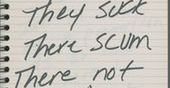 They suck
There scum
There not